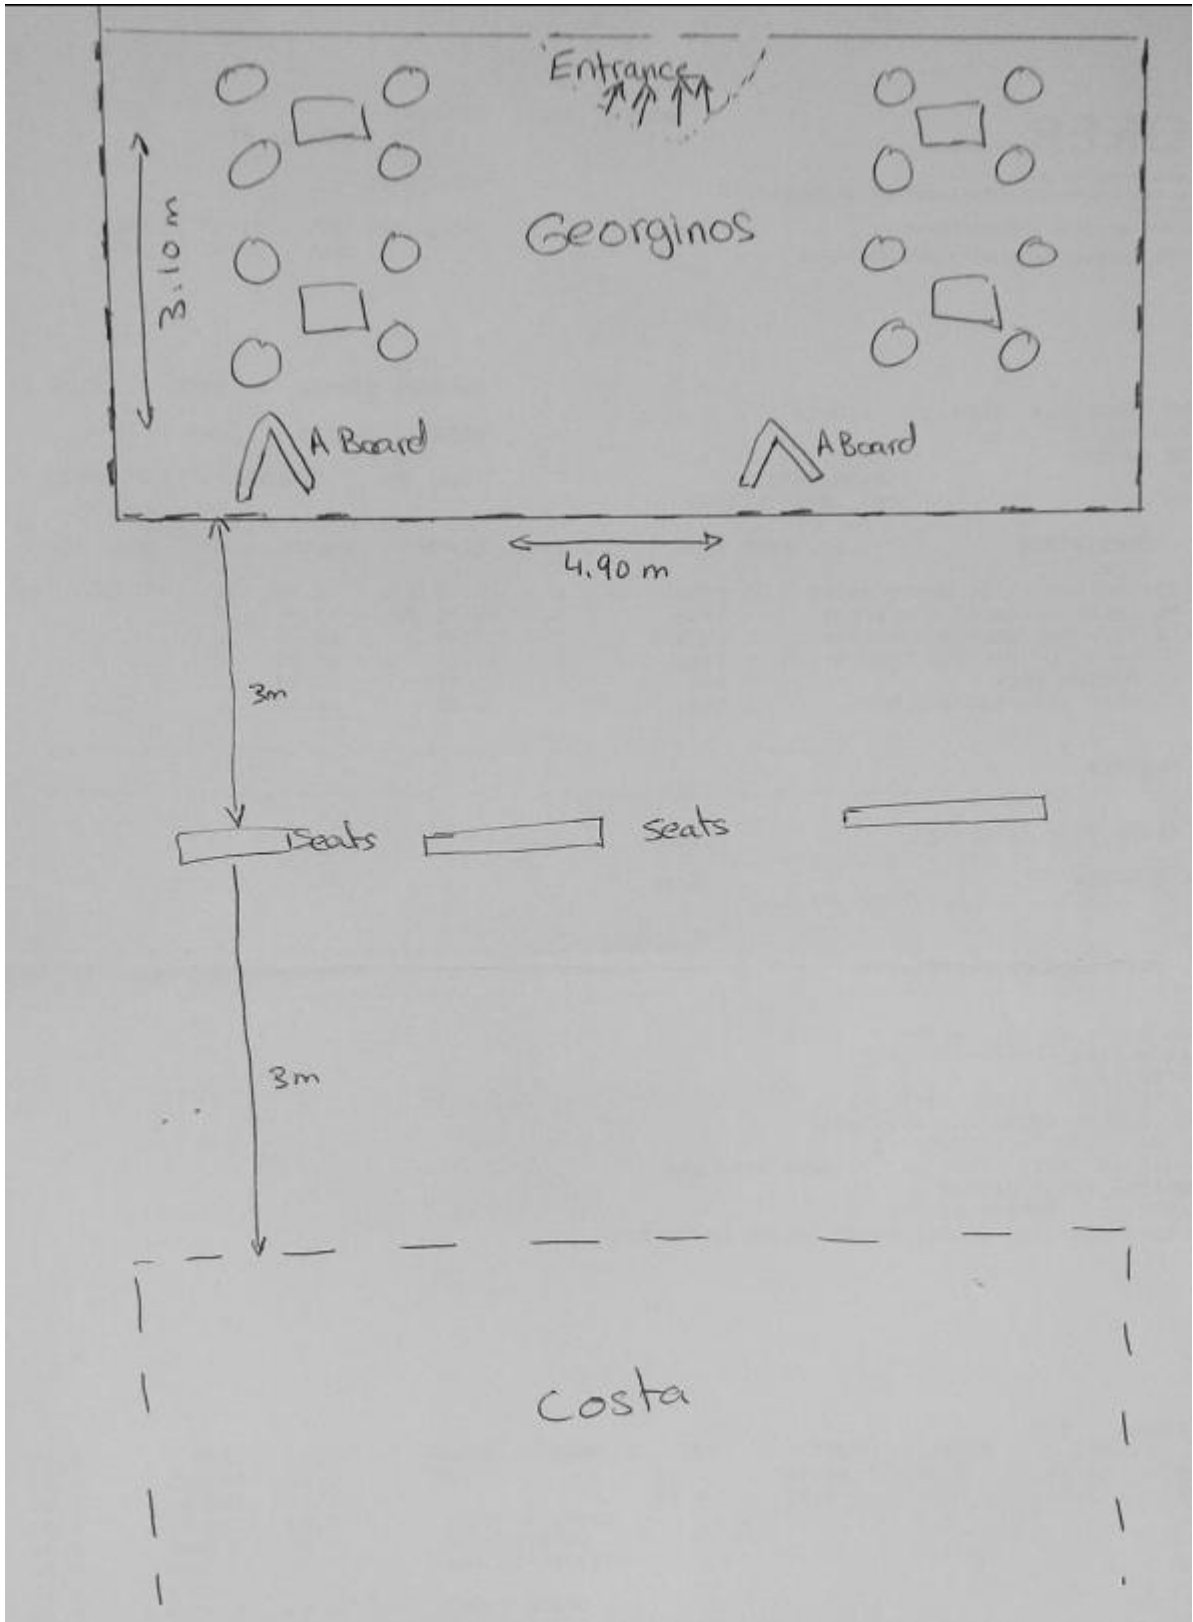 Entrance
3.10 m
Georginos
A Board
A Board
4.90 m
3m
Seats
Seats
3m
Costa